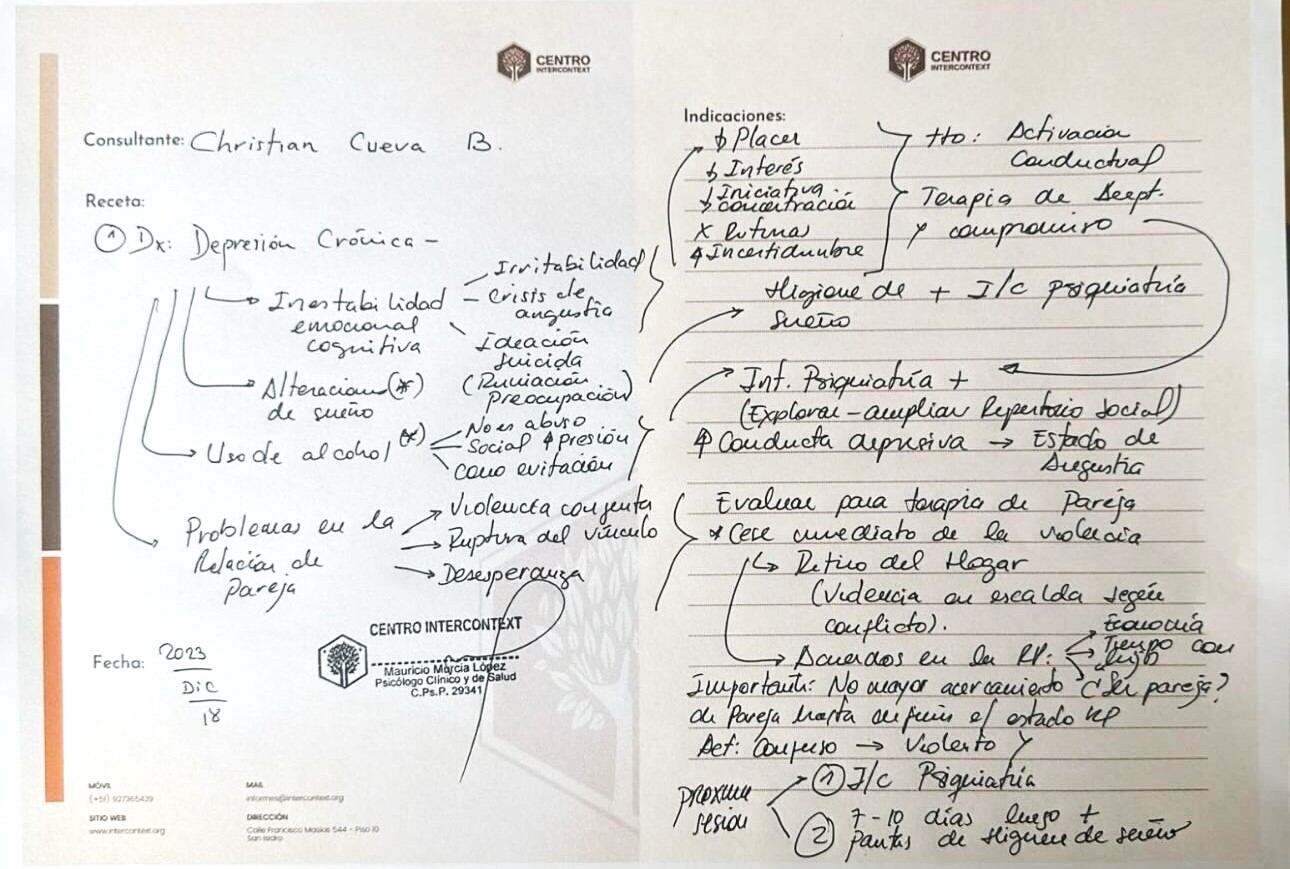 CENTRO
INTERCONTEXT
Consultante: Christian Cueva B.
Receta:
① Dx: Depresión Crónica -
→ Inestabilidad
emocional
cognitiva
- Irritabilidad
- Crisis de
angustia
Ideación
suicida
(Rumiación
Preocupación)
→ Alteraciones (*)
de sueño
→ Uso de alcohol (*)
No es abuso
Social ↑ presión
como evitación
Problemas en la
Relación de
pareja
→ Violencia conjunta
→ Ruptura del vínculo
→ Desesperanza
CENTRO INTERCONTEXT
Mauricio Murcia López
Psicólogo Clínico y de Salud
C.Ps.P. 29341
Fecha: 2023
Dic
18
MÓVIL
(+51) 927365429
SITIO WEB
www.intercontext.org
MAIL
informes@intercontext.org
DIRECCIÓN
Calle Francisco Masías 544 - Piso 10
San Isidro
CENTRO
INTERCONTEXT
Indicaciones:
↓ Placer
↓ Interés
↓ Iniciativa
↓ concentración
X Rutinas
↑ Incertidumbre
tto: Activación
Conductual
Terapia de Acept.
y compromiso
Higiene de + I/c psiquiatría
sueño
→ Int. Psiquiatría +
(Explorar - ampliar Repertorio Social)
↑ Conducta depresiva → Estado de
Angustia
Evaluar para terapia de Pareja
* Cese inmediato de la violencia
↳ Retiro del Hogar
(Violencia en escalda según
conflicto).
→ Acuerdos en la RP:
Economía
Tiempo con
hijo
¿Ser pareja?
Importante: No mayor acercamiento
de Pareja hasta definir el estado RP
Act: Confuso → Violento y
proxima
sesión
① I/c Psiquiatría
② 7-10 días luego +
pautas de Higiene de sueño